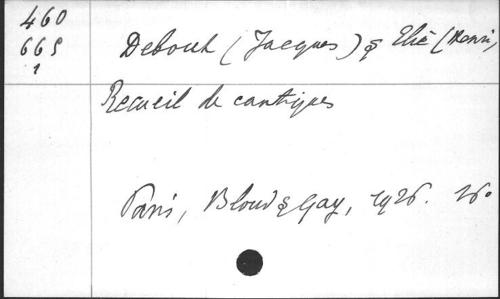 460
665
1
Debout (Jacques) & Elie (Henri)
Recueil de cantiques
Paris, Bloud & Gay, 1926. 16°